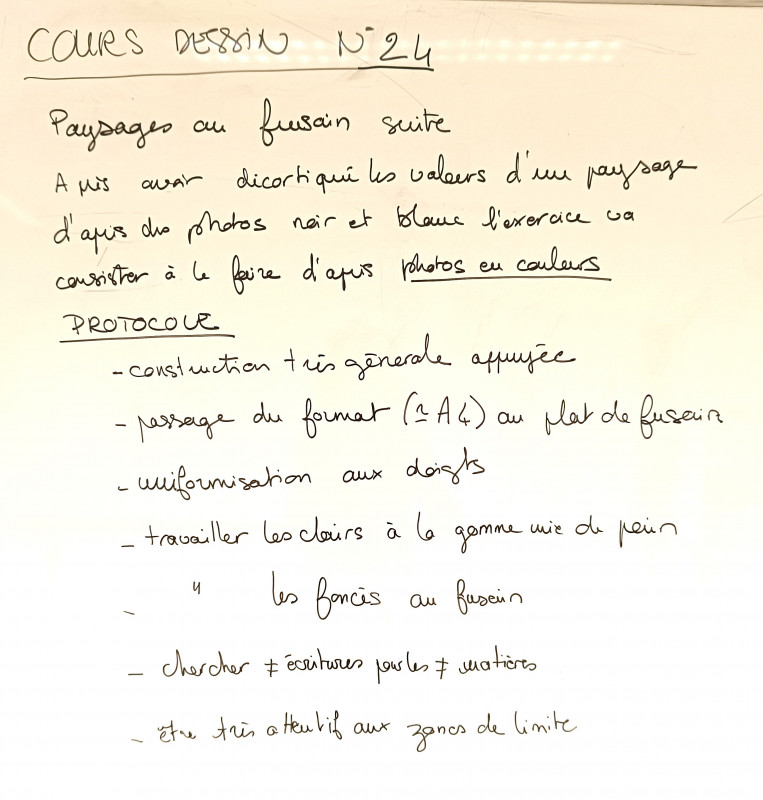 COURS DESSIN N°24
Paysages au fusain suite
Après avoir décortiqué les valeurs d'un paysage
d'après des photos noir et blanc l'exercice va
consister à le faire d'après photos en couleurs
PROTOCOLE
- construction très générale appuyée
- passage du format (≃ A4) au plat de fusain
- uniformisation aux doigts
- travailler les clairs à la gomme mie de pain
- " les foncés au fusain
- chercher ≠ écritures pour les ≠ matières
- être très attentif aux zones de limite